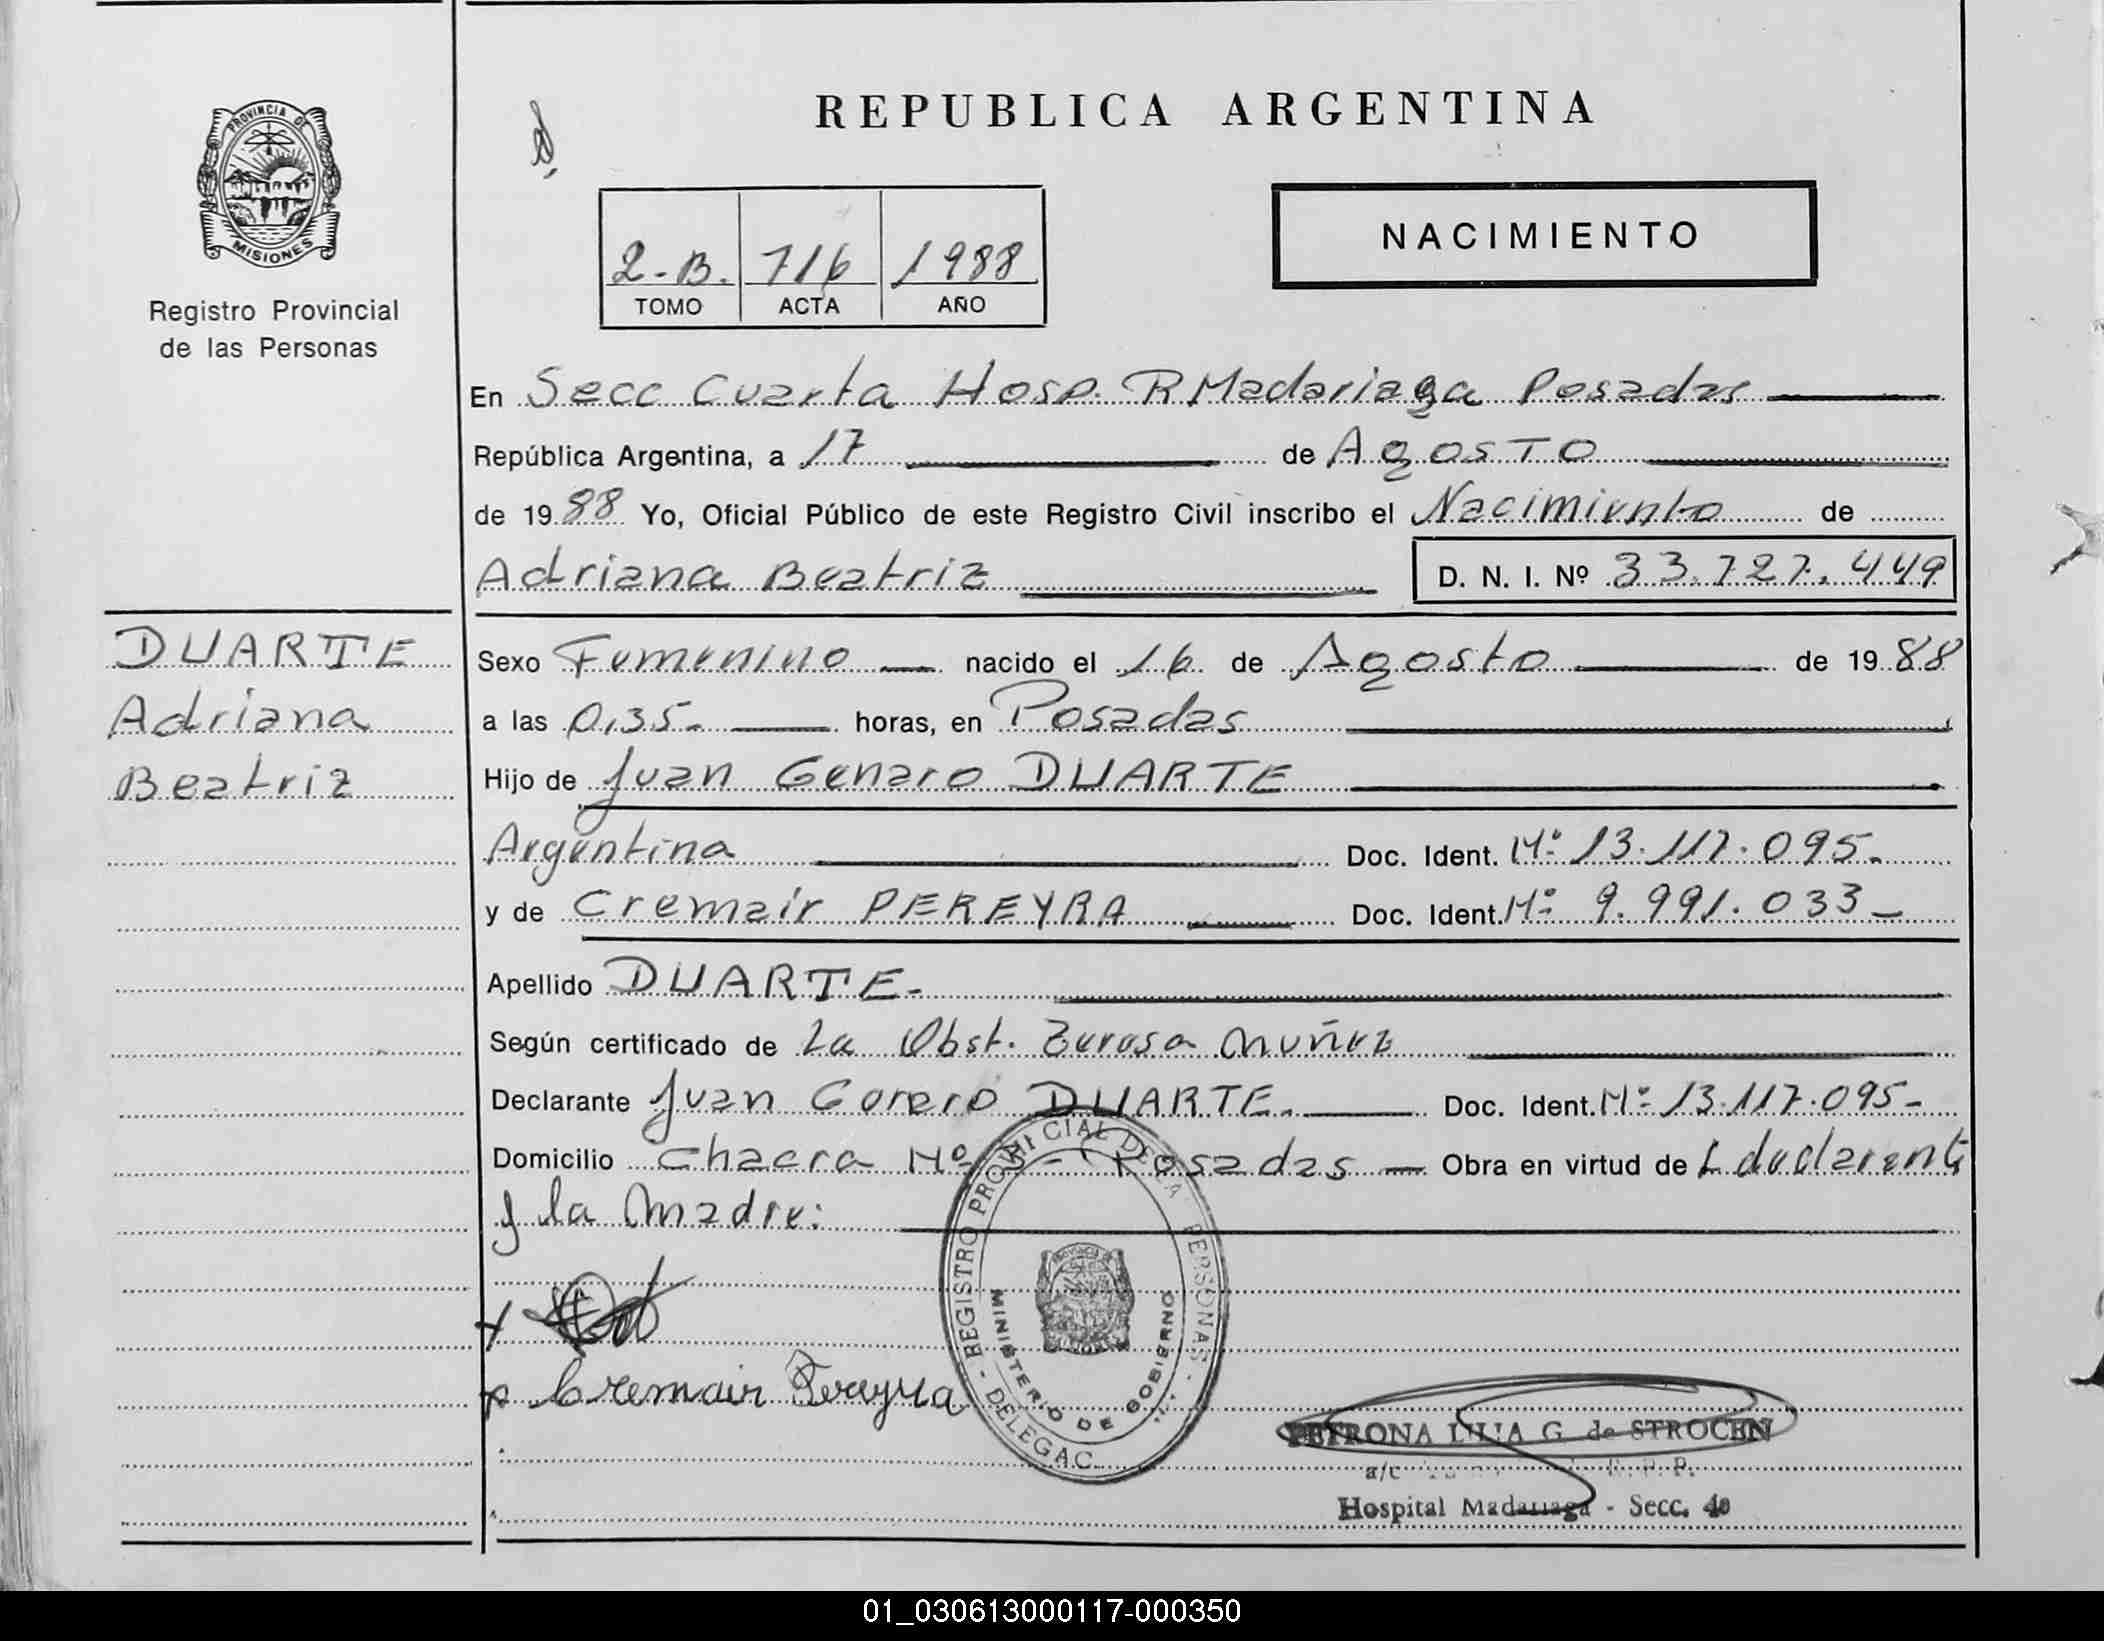 PROVINCIA DE
MISIONES
Registro Provincial
de las Personas
REPUBLICA ARGENTINA
NACIMIENTO
2-B. 716 1988
TOMO ACTA AÑO
En Secc Cuarta Hosp. R Madariaga Posadas
República Argentina, a 17 de Agosto
de 1988 Yo, Oficial Público de este Registro Civil inscribo el Nacimiento de
Adriana Beatriz D. N. I. Nº 33.727.449
DUARTE
Adriana
Beatriz
Sexo Femenino nacido el 16 de Agosto de 1988
a las 0,35- horas, en Posadas
Hijo de Juan Genaro DUARTE
Argentina Doc. Ident. Nº 13.117.095.
y de Cremair PEREYRA Doc. Ident. Nº 9.991.033-
Apellido DUARTE-
Según certificado de La Obst. Muñez
Declarante Juan DUARTE. Doc. Ident. Nº 13.117.095-
Domicilio Chacra Nº Posadas - Obra en virtud de L declarente
y la Madre:
Cremair Pereyra
REGISTRO PROVINCIAL DE LAS PERSONAS - DELEGAC.
MINISTERIO DE GOBIERNO
PETRONA LILIA G. de STROCEN
a/c R. P. P.
Hospital Madariaga - Secc. 4a
01_030613000117-000350